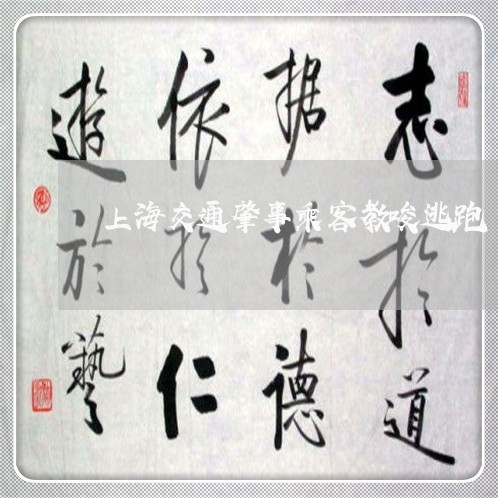 志於道
据於德
依於仁
遊於藝
上海交通肇事乘客教唆逃跑